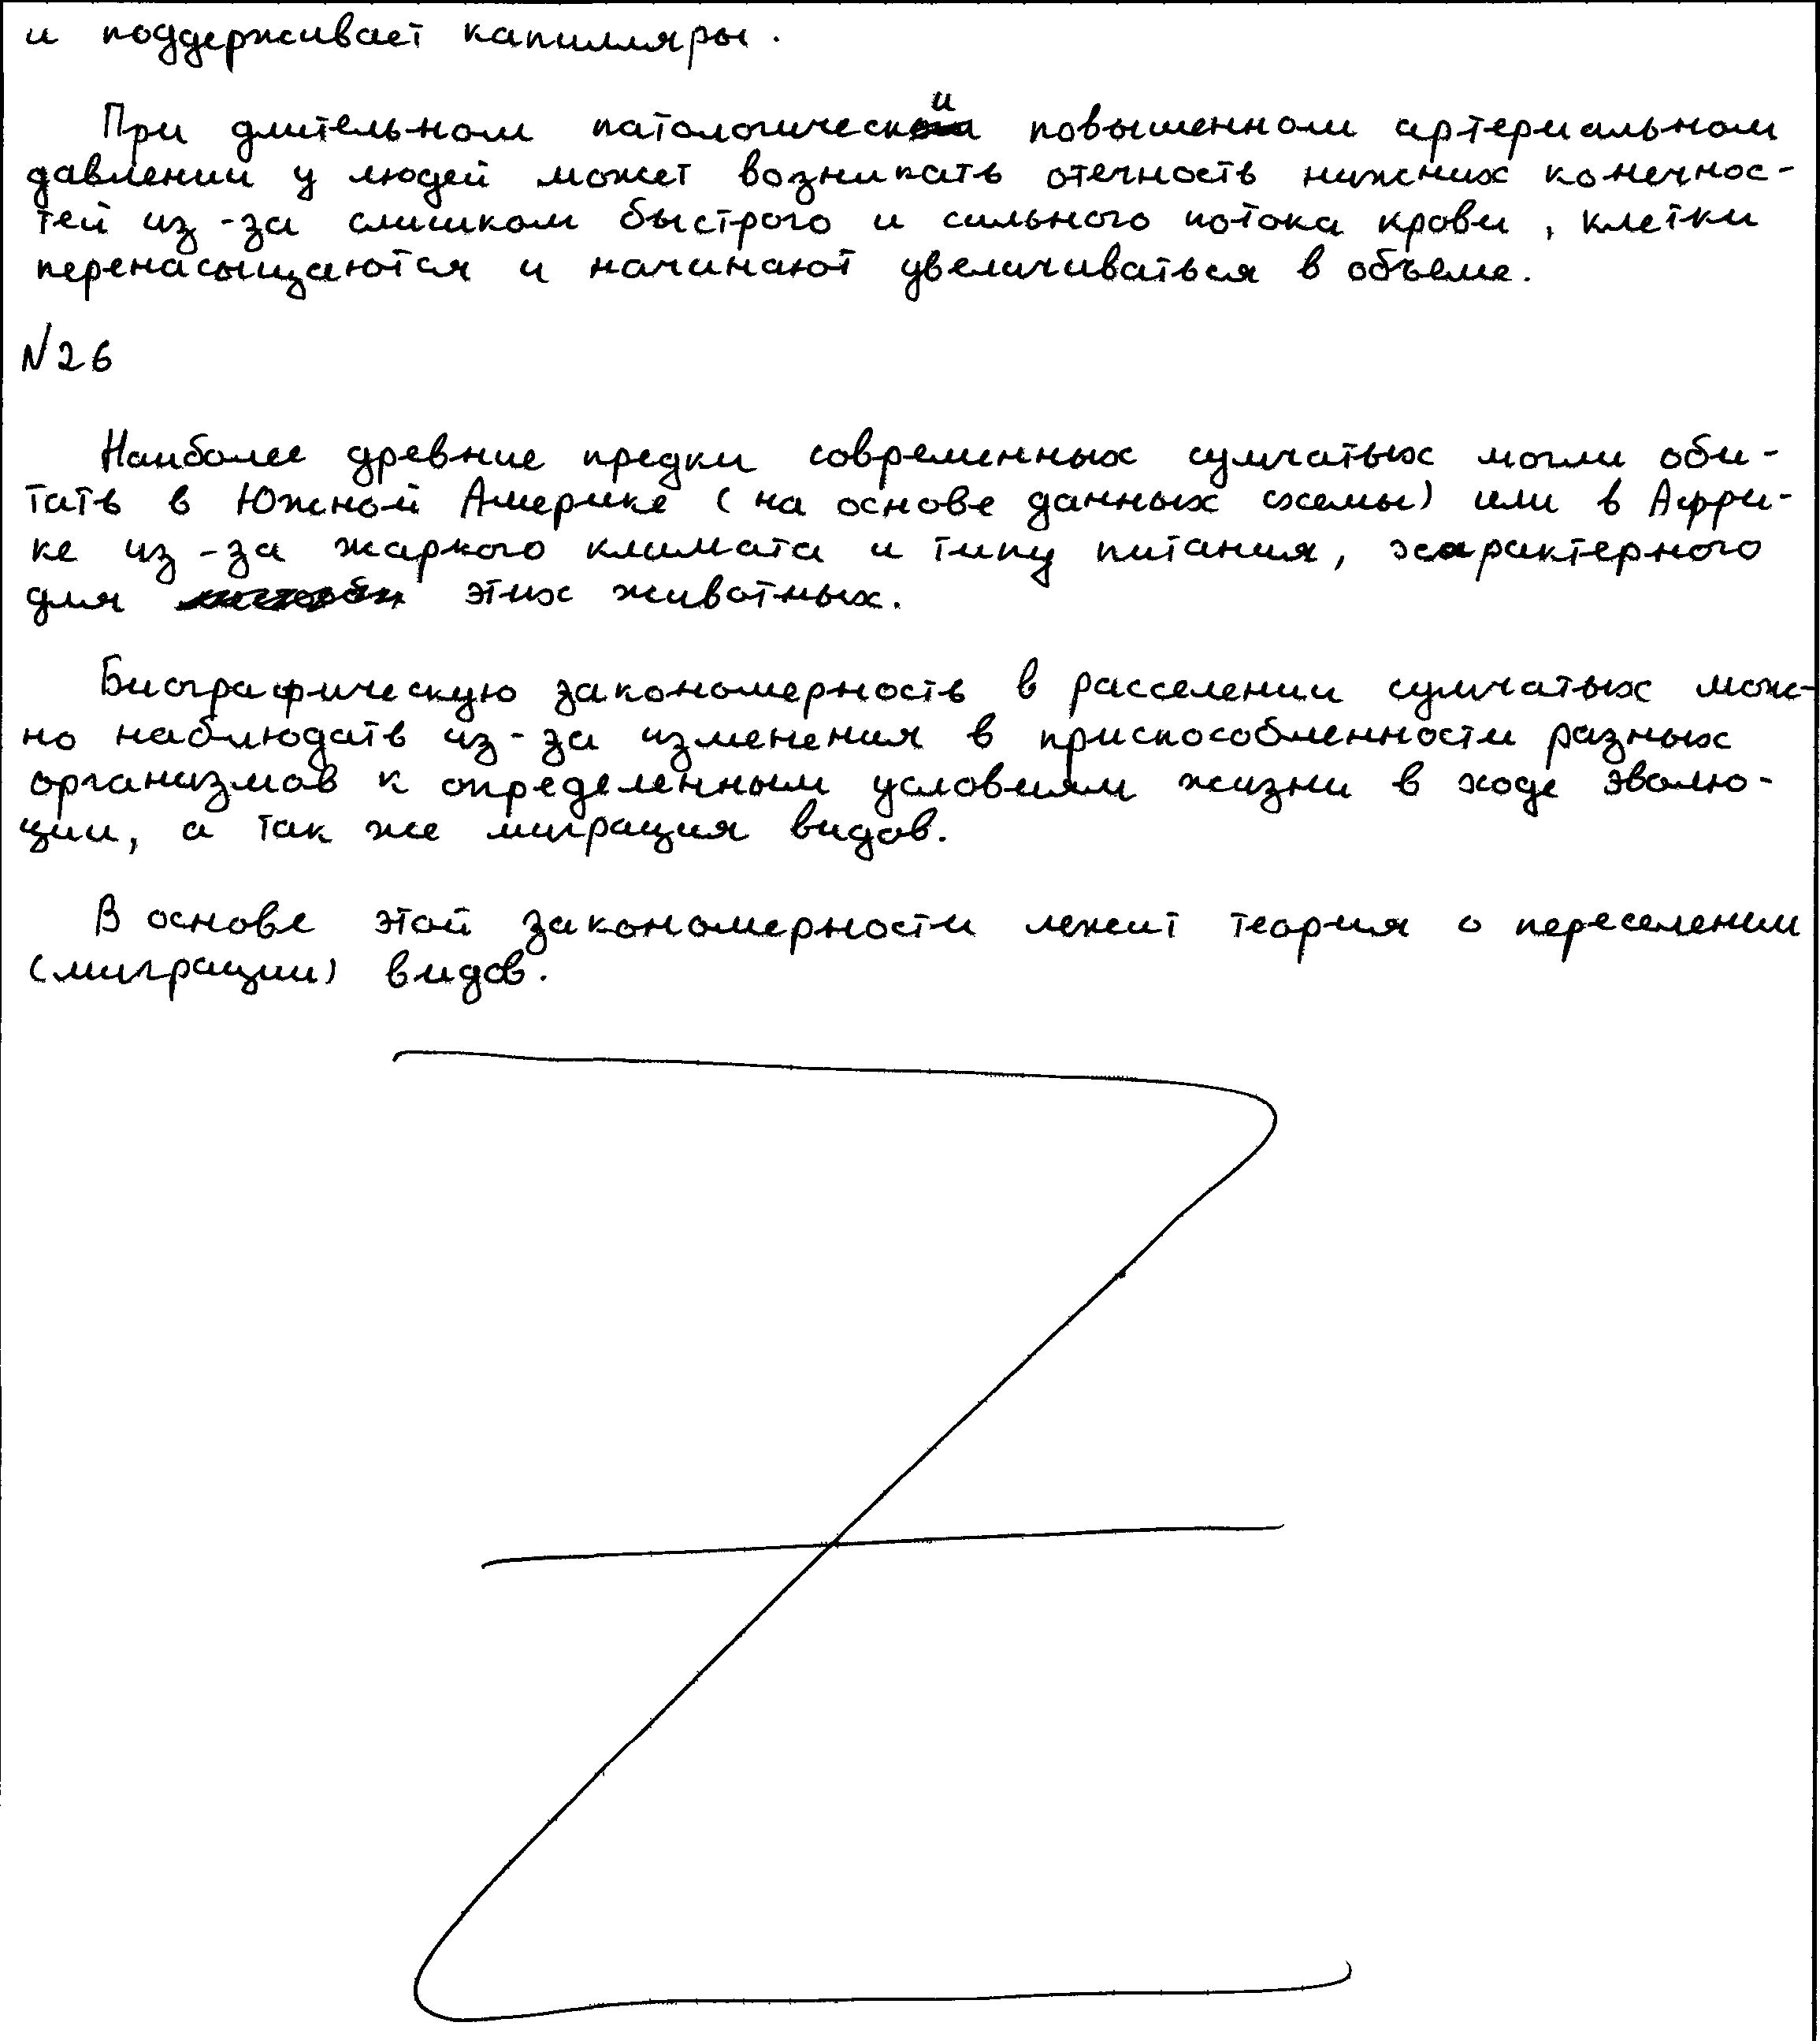 и поддерживает капилляры.
При длительном патологически повышенном артериальном
давлении у людей может возникать отечность нижних конечнос-
тей из-за слишком быстрого и сильного потока крови, клетки
перенасыщаются и начинают увеличиваться в объеме.
№26
Наиболее древние предки современных сумчатых могли оби-
тать в Южной Америке (на основе данных схемы) или в Афри-
ке из-за жаркого климата и типу питания, характерного
для этих животных.
Биографическую закономерность в расселении сумчатых мож-
но наблюдать из-за изменения в приспособленности разных
организмов к определенным условиям жизни в ходе эволю-
ции, а так же миграция видов.
В основе этой закономерности лежит теория о переселении
(миграции) видов.